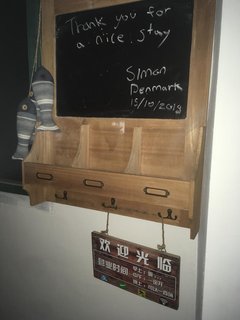 Thank you for
a nice stay
Simon
Denmark
15/10/2019
欢迎光临
营业时间